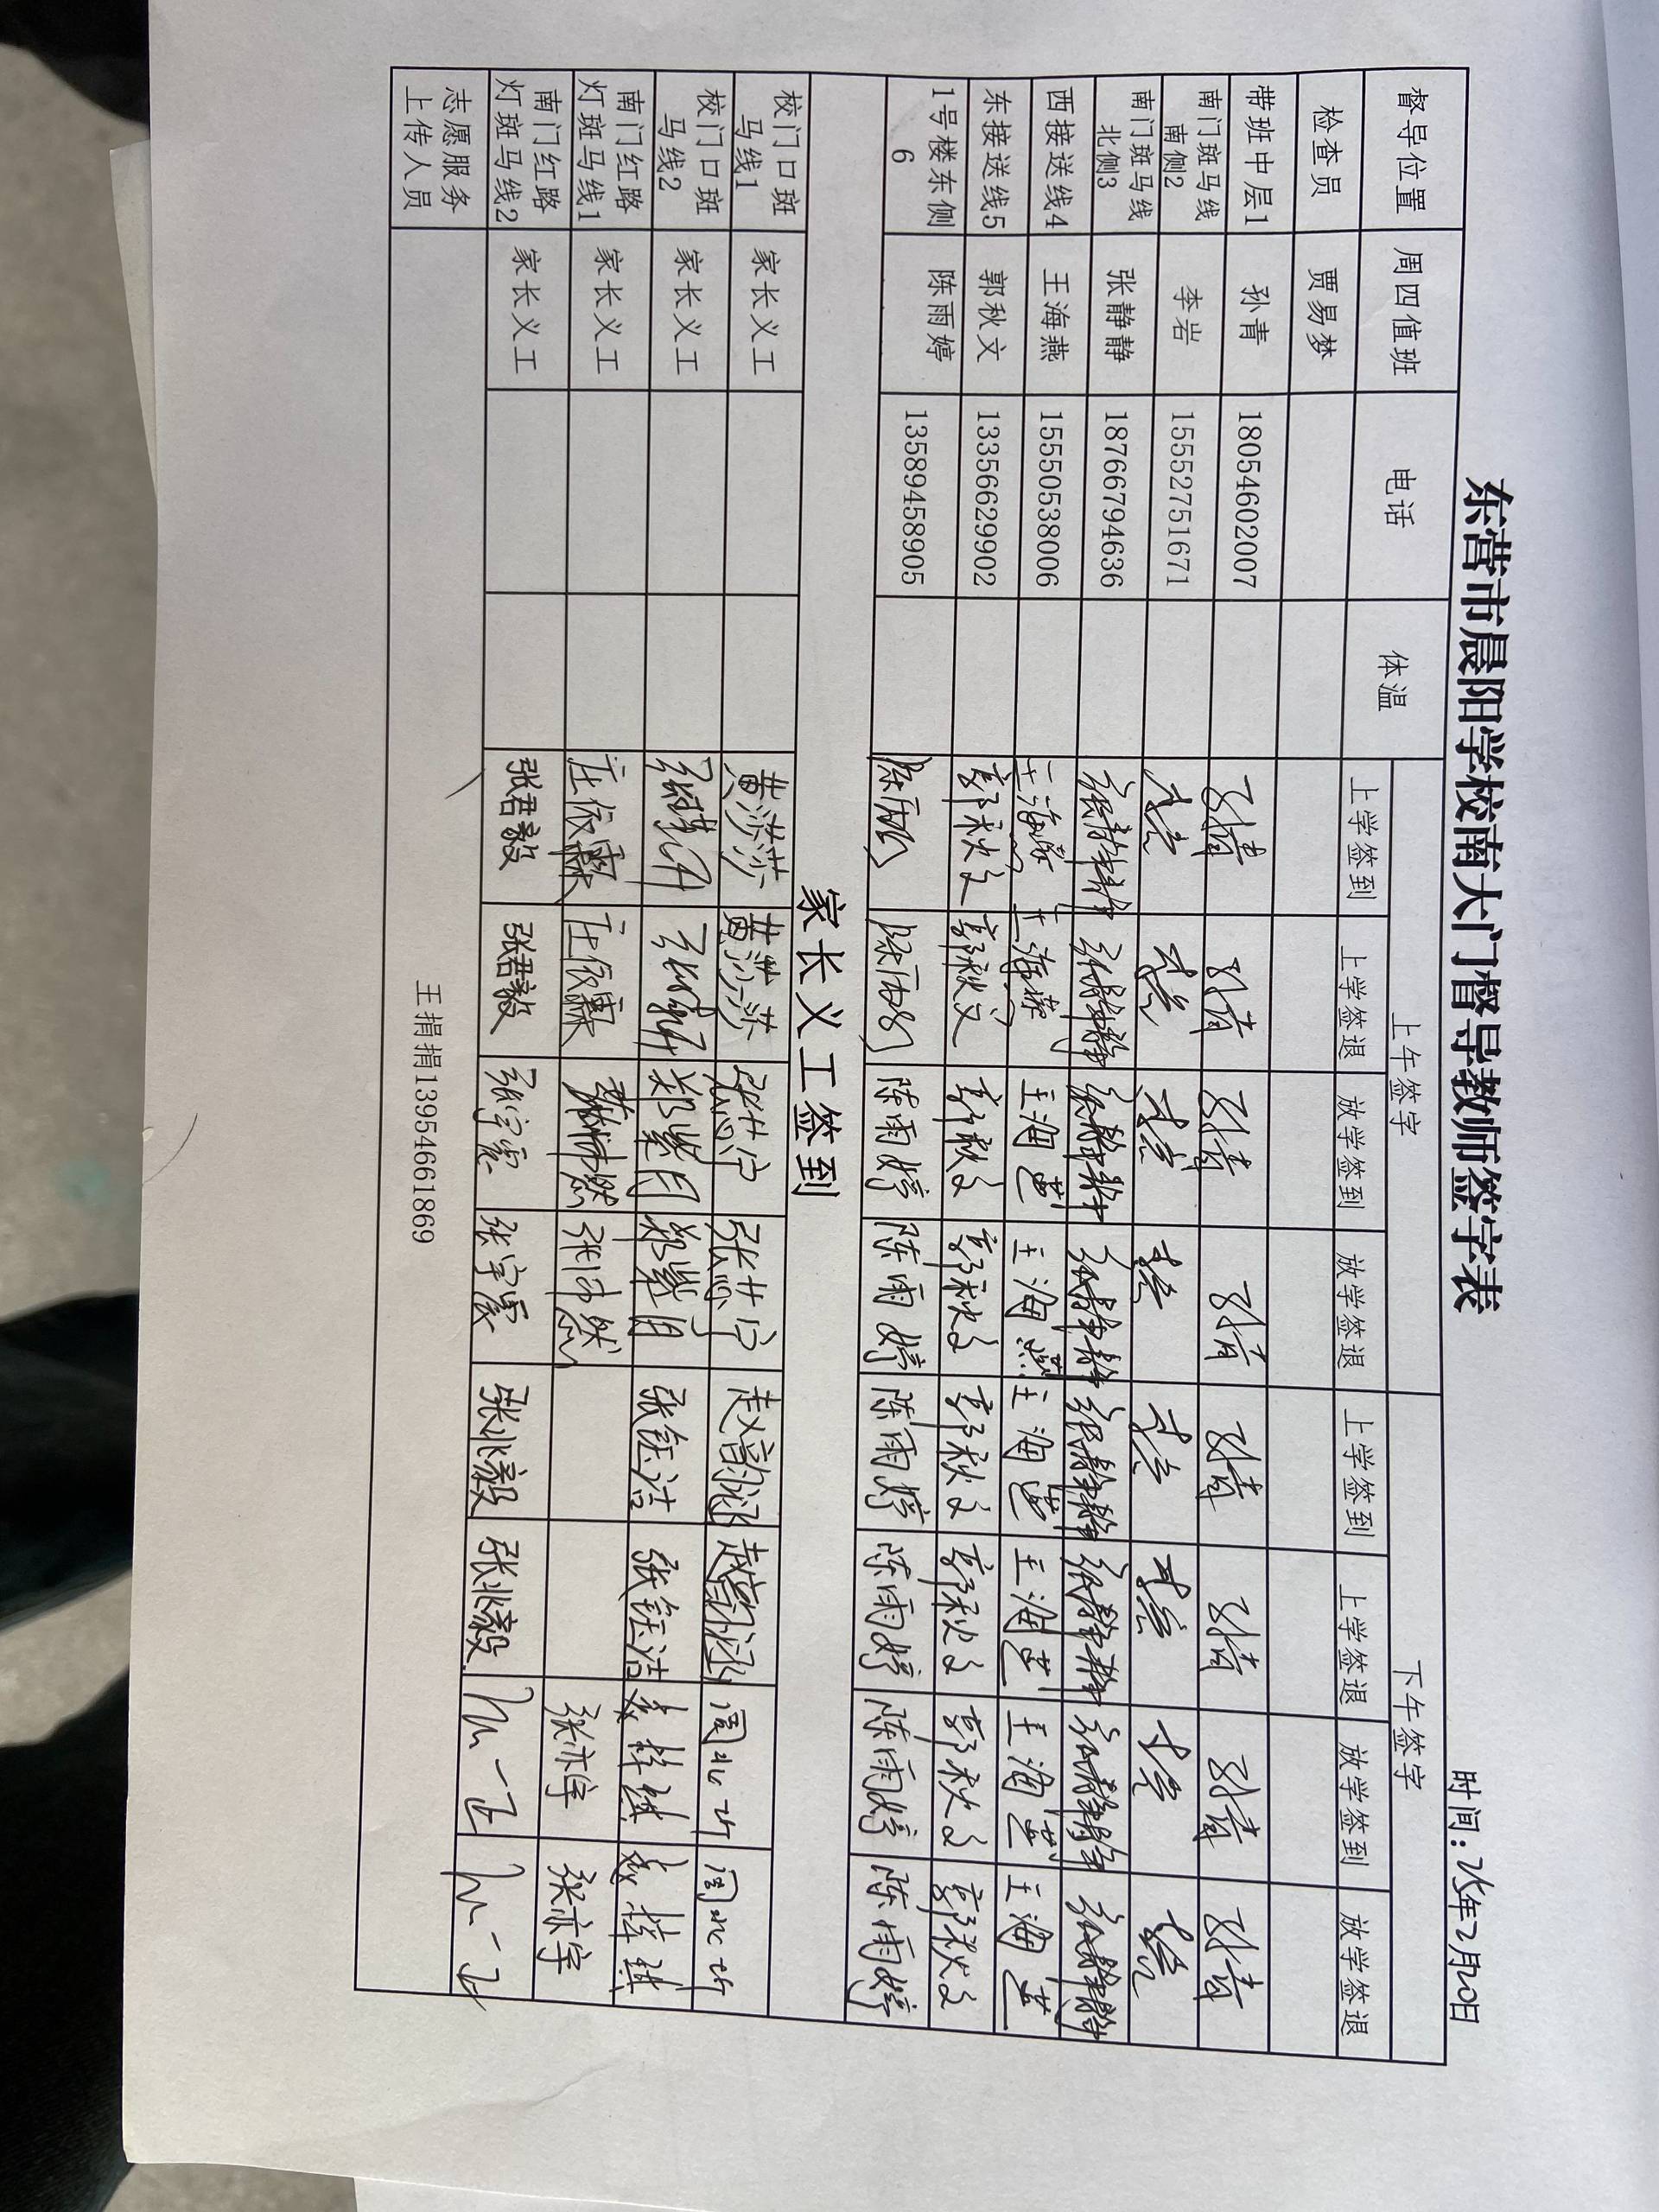 东营市晨阳学校南大门督导教师签字表
时间：25年2月20日
督导位置 周四值班 电话 体温 上午签字 下午签字
上学签到 上学签退 放学签到 放学签退 上学签到 上学签退 放学签到 放学签退
检查员 贾易梦
带班中层1 孙青 18054602007 孙青 孙青 孙青 孙青 孙青 孙青 孙青 孙青
南门斑马线
南侧2 李岩 15552751671 李岩 李岩 李岩 李岩 李岩 李岩 李岩 李岩
南门斑马线
北侧3 张静静 18766794636 张静静 张静静 张静静 张静静 张静静 张静静 张静静 张静静
西接送线4 王海燕 15550538006 王海燕 王海燕 王海燕 王海燕 王海燕 王海燕 王海燕 王海燕
东接送线5 郭秋文 13356629902 郭秋文 郭秋文 郭秋文 郭秋文 郭秋文 郭秋文 郭秋文 郭秋文
1号楼东侧
6 陈雨婷 13589458905 陈雨婷 陈雨婷 陈雨婷 陈雨婷 陈雨婷 陈雨婷 陈雨婷 陈雨婷
家长义工签到
校门口斑
马线1 家长义工 黄莎莎 黄莎莎
校门口斑
马线2 家长义工 郑紫月 郑紫月 张钰洁 张钰洁
南门红路
灯斑马线1 家长义工 庄依霖 庄依霖 张沛然 张沛然 张亦宇 张亦宇
南门红路
灯斑马线2 家长义工 张君毅 张君毅 张兆毅 张兆毅
志愿服务
上传人员 王捐捐13954661869